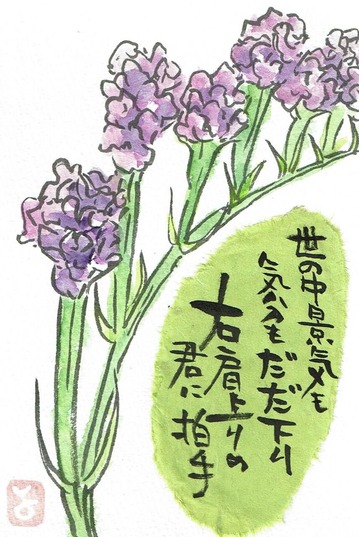 世の中景気も
気分もだだ下り
右肩上りの
君に拍手